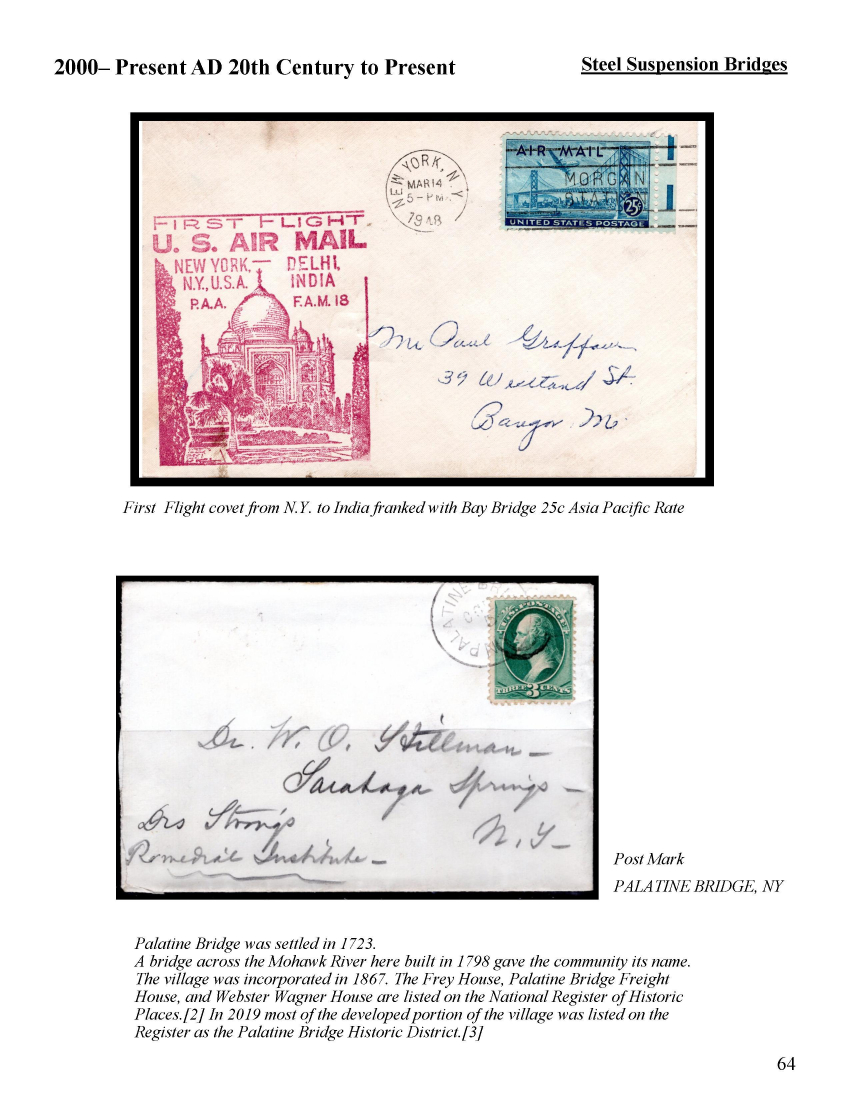 2000– Present AD 20th Century to Present
Steel Suspension Bridges
NEW YORK, N.Y.
MAR 14
5 - PM
1948
AIR MAIL
MORGAN
25¢
UNITED STATES POSTAGE
FIRST FLIGHT
U. S. AIR MAIL
NEW YORK, — DELHI,
N.Y., U.S.A. INDIA
P.A.A. F.A.M. 18
Mr Paul
39 St.
Bangor Me
First Flight covet from N.Y. to India franked with Bay Bridge 25c Asia Pacific Rate
PALATINE BRI
U.S. POSTAGE
THREE 3 CENTS
Dr. W. O. Stillman –
Saratoga Springs –
N. Y –
Drs Strong's
Remedial Institute –
Post Mark
PALATINE BRIDGE, NY
Palatine Bridge was settled in 1723.
A bridge across the Mohawk River here built in 1798 gave the community its name.
The village was incorporated in 1867. The Frey House, Palatine Bridge Freight
House, and Webster Wagner House are listed on the National Register of Historic
Places.[2] In 2019 most of the developed portion of the village was listed on the
Register as the Palatine Bridge Historic District.[3]
64